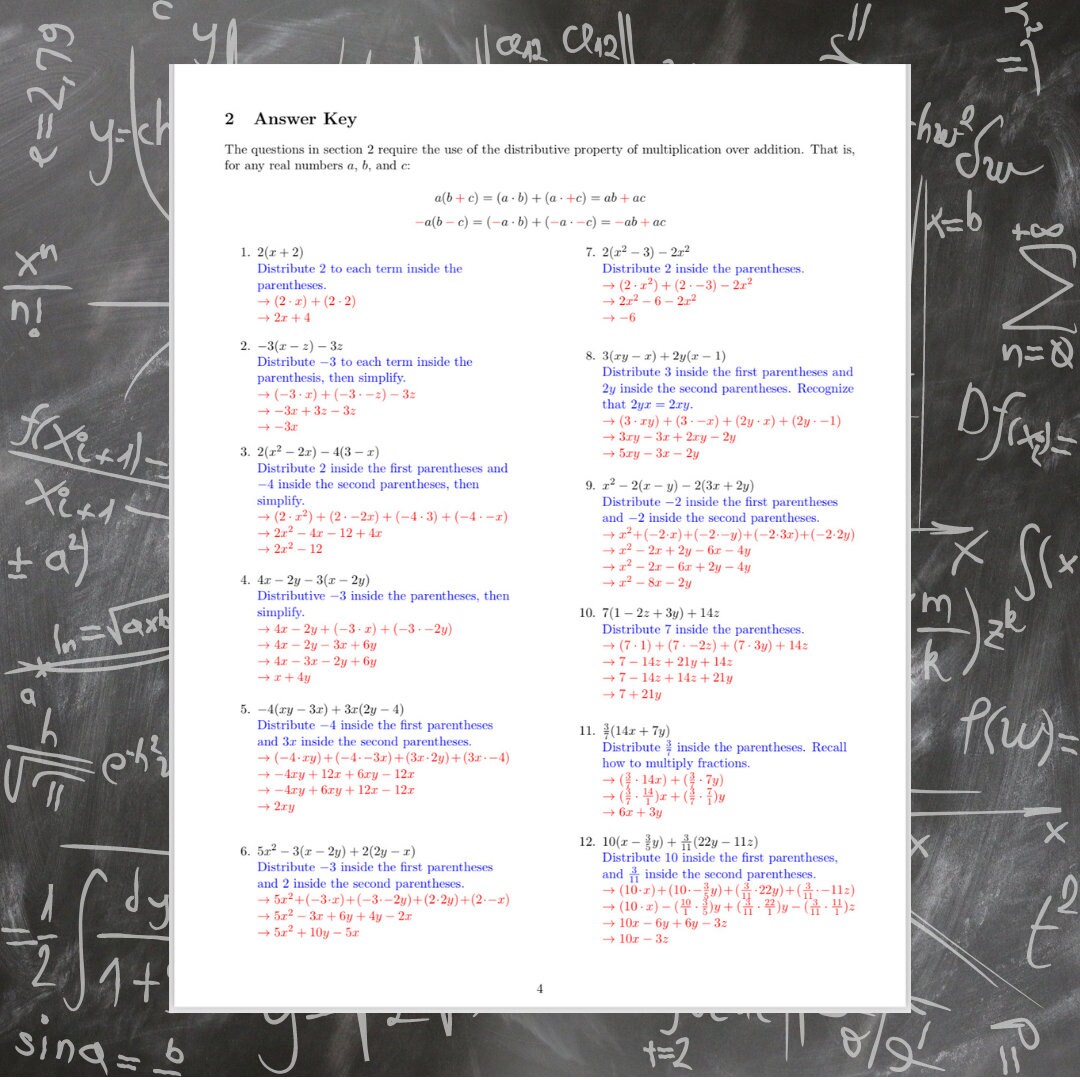 2 Answer Key
The questions in section 2 require the use of the distributive property of multiplication over addition. That is,
for any real numbers a, b, and c:
a(b + c) = (a · b) + (a · +c) = ab + ac
−a(b − c) = (−a · b) + (−a · −c) = −ab + ac
1. 2(x + 2)
Distribute 2 to each term inside the
parentheses.
→ (2 · x) + (2 · 2)
→ 2x + 4
2. −3(x − z) − 3z
Distribute −3 to each term inside the
parenthesis, then simplify.
→ (−3 · x) + (−3 · −z) − 3z
→ −3x + 3z − 3z
→ −3x
3. 2(x² − 2x) − 4(3 − x)
Distribute 2 inside the first parentheses and
−4 inside the second parentheses, then
simplify.
→ (2 · x²) + (2 · −2x) + (−4 · 3) + (−4 · −x)
→ 2x² − 4x − 12 + 4x
→ 2x² − 12
4. 4x − 2y − 3(x − 2y)
Distributive −3 inside the parentheses, then
simplify.
→ 4x − 2y + (−3 · x) + (−3 · −2y)
→ 4x − 2y − 3x + 6y
→ 4x − 3x − 2y + 6y
→ x + 4y
5. −4(xy − 3x) + 3x(2y − 4)
Distribute −4 inside the first parentheses
and 3x inside the second parentheses.
→ (−4·xy)+(−4·−3x)+(3x·2y)+(3x·−4)
→ −4xy + 12x + 6xy − 12x
→ −4xy + 6xy + 12x − 12x
→ 2xy
6. 5x² − 3(x − 2y) + 2(2y − x)
Distribute −3 inside the first parentheses
and 2 inside the second parentheses.
→ 5x²+(−3·x)+(−3·−2y)+(2·2y)+(2·−x)
→ 5x² − 3x + 6y + 4y − 2x
→ 5x² + 10y − 5x
7. 2(x² − 3) − 2x²
Distribute 2 inside the parentheses.
→ (2 · x²) + (2 · −3) − 2x²
→ 2x² − 6 − 2x²
→ −6
8. 3(xy − x) + 2y(x − 1)
Distribute 3 inside the first parentheses and
2y inside the second parentheses. Recognize
that 2yx = 2xy.
→ (3 · xy) + (3 · −x) + (2y · x) + (2y · −1)
→ 3xy − 3x + 2xy − 2y
→ 5xy − 3x − 2y
9. x² − 2(x − y) − 2(3x + 2y)
Distribute −2 inside the first parentheses
and −2 inside the second parentheses.
→ x²+(−2·x)+(−2·−y)+(−2·3x)+(−2·2y)
→ x² − 2x + 2y − 6x − 4y
→ x² − 2x − 6x + 2y − 4y
→ x² − 8x − 2y
10. 7(1 − 2z + 3y) + 14z
Distribute 7 inside the parentheses.
→ (7 · 1) + (7 · −2z) + (7 · 3y) + 14z
→ 7 − 14z + 21y + 14z
→ 7 − 14z + 14z + 21y
→ 7 + 21y
11. 3/7(14x + 7y)
Distribute 3/7 inside the parentheses. Recall
how to multiply fractions.
→ (3/7 · 14x) + (3/7 · 7y)
→ (3/7 · 14/1)x + (3/7 · 7/1)y
→ 6x + 3y
12. 10(x − 3/5y) + 3/11(22y − 11z)
Distribute 10 inside the first parentheses,
and 3/11 inside the second parentheses.
→ (10·x)+(10·−3/5y)+(3/11·22y)+(3/11·−11z)
→ (10 · x) − (10/1 · 3/5)y + (3/11 · 22/1)y − (3/11 · 11/1)z
→ 10x − 6y + 6y − 3z
→ 10x − 3z
4
e=2,79
xⁿ
n!
sina = b
x=b
+∞
n=0
t=2